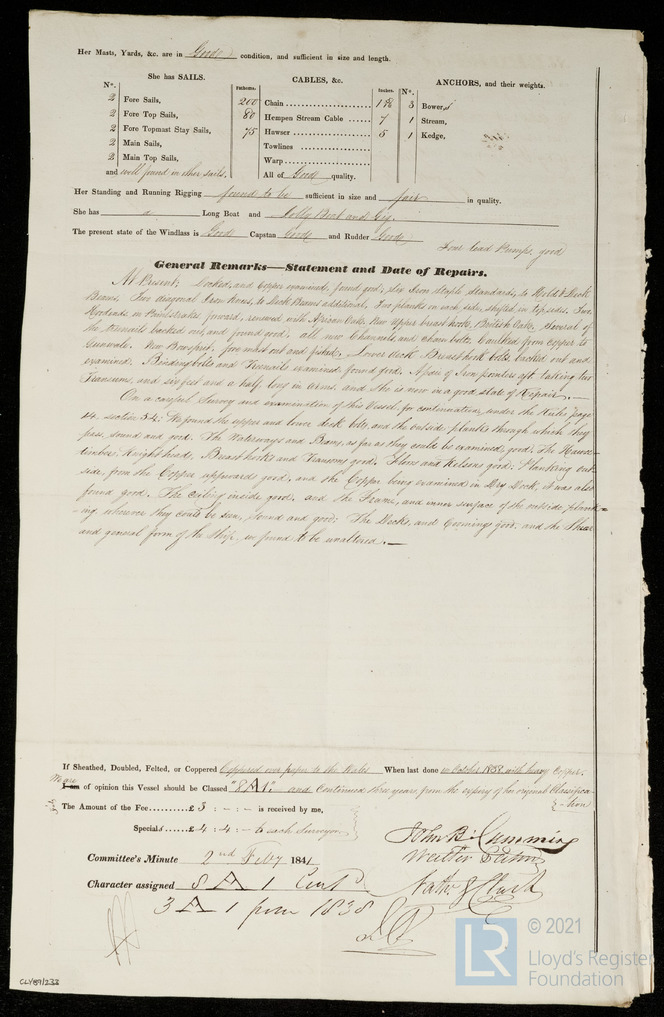 Her Masts, Yards, &c. are in Good condition, and sufficient in size and length.
She has SAILS.
CABLES, &c.
ANCHORS, and their weights.
N°.
Fathoms.
Inches.
N°.
2 Fore Sails,
200 Chain
1 1/8
3 Bowers
2 Fore Top Sails,
80 Hempen Stream Cable
7
1 Stream,
2 Fore Topmast Stay Sails,
75 Hawser
5
1 Kedge,
2 Main Sails,
Towlines
2 Main Top Sails,
Warp
and well found in other sails.
All of Good quality.
Her Standing and Running Rigging found to be sufficient in size and fair in quality.
She has a Long Boat and Jolly Boat and Gig.
The present state of the Windlass is Good Capstan Good and Rudder Good
Four lead Pumps, good
General Remarks—Statement and Date of Repairs.
At Present; Docked, and Copper examined, found good; Six Iron staple standards, to Hold & Deck
Beams, Two diagonal Iron Knees, to Deck Beams additional, Two planks on each side, shifted, in top sides. Two
in Paintstrakes forward, renewed with African Oak. New Upper breast hook, British Oak. Several of
the treenails backed out, and found good, all new Channels and chain bolts. Caulked from copper to
Gunwale. New Bowsprit, fore mast out and fished. Lower deck Breast hook bolts, backed out and
examined. Binding bolts and Treenails examined, found good. A pair of Iron pointers aft, taking two
Transoms, and six feet and a half long in arms, and she is now in a good state of Repair.—
On a careful Survey and examination of this Vessel for continuation, under the Rules Page
14. section 54: We found the upper and lower deck bolts, and the outside planks through which they
pass, sound and good. The Waterways and Beams, as far as they could be examined, good; The Hawse
timbers, Knight heads, Breast hooks and Transoms good. Floors and Kelsons good; Planking out-
side, from the Copper upward good, and the Copper being examined in Dry Dock, it was also
found good. The ceiling inside good, and the Frame, and inner surface of the outside plank-
-ing wherever they could be seen, sound and good; The Decks, and Comings good; and the Sheer
and general form of the Ship, we found to be unaltered.—
If Sheathed, Doubled, Felted, or Coppered Coppered over paper to the Wales When last done in October 1838 with heavy Copper.
We are
I am of opinion this Vessel should be Classed "8 A 1". and Continued three years, from the expiry of her original Classifica-
-tion
The Amount of the Fee £ 3 : - : - is received by me,
Special £ 4 : 4 : - to each Surveyor
John B. Cumming
Committee's Minute 2nd Feby 1841
Walter Paton
Character assigned 8 A 1 Cont d
3 A 1 from 1838
CLY89/233
LR
© 2021
Lloyd's Register
Foundation